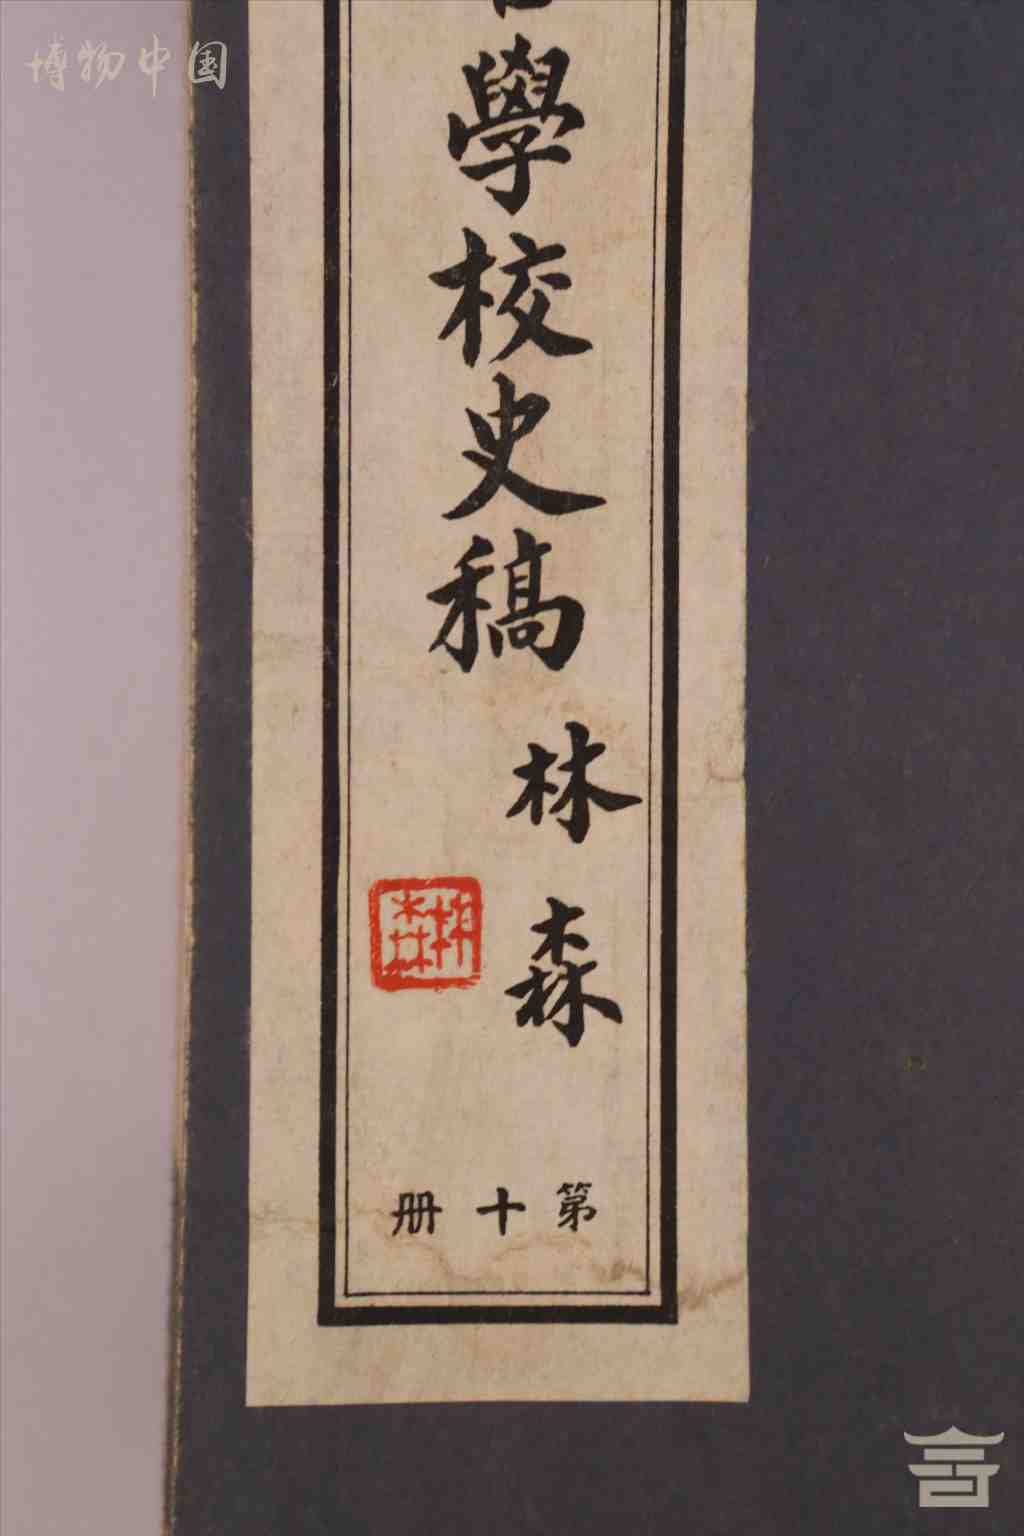 博物中国
學校史稿
林森
林森
第十册